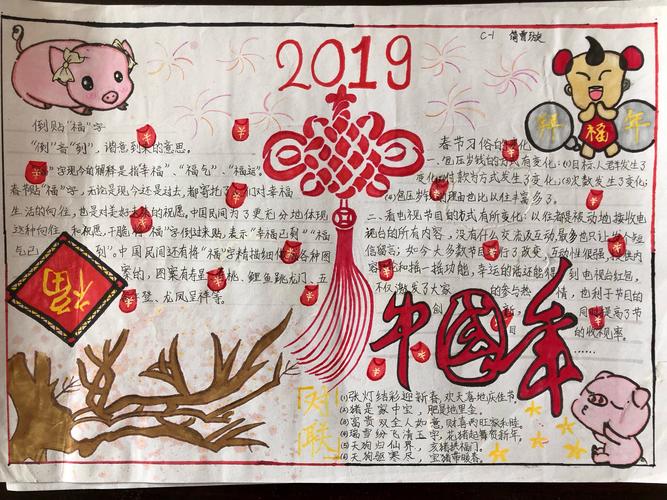 2019
C-1
拜福年
倒贴"福"字
"倒""音"到", 谐意到来的意思。
"字现今的解释是指幸福"、"福气"、"福运"。
春节贴"福"字, 无论是现今还是过去, 都寄托了人们对幸福
生活的向往, 也是对美好未来的祝愿, 中国民间为了更充分地体现
这种向往和祝愿, 干脆将"福"字倒过来贴, 表示"幸福已到""福
气已到"。中国民间还有将"福"字精描细作成各种图
案的, 图案有寿星、寿桃、鲤鱼跳龙门、五
登、龙凤呈祥等。
福
春节习俗的变化
一、包压岁钱的方式有变化:(1)目标人群发生了
变化;付款方式发生了变化;(3)次数发生了变化;
(4)包压岁的理由也比以往丰富多了。
二、看电视节目的方式有所变化:以往都是被动地接收电
视台的所有内容, 没有什么交流及互动, 最多也只让发个短
信留言;如今大多数节目进行了改变, 互动性很强,
内和摇一摇功能, 幸运的话还能得到电视台红包,
不仅激发了大家的参与热情, 也利于节目的
创新, 同时提高了节
目的收视率。
......
中国年
对联
(1)张灯结彩迎新春, 欢天喜地庆佳节。
(2)猪是家中宝, 肥是地里金。
(3)富贵双全人如意, 财喜两旺家和睦。
(4)瑞雪纷飞清玉宇, 花猪起舞贺新年。
(5)天狗归仙界, 亥猪拱福门。
(6)天狗驱寒尽, 宝猪带暖春。